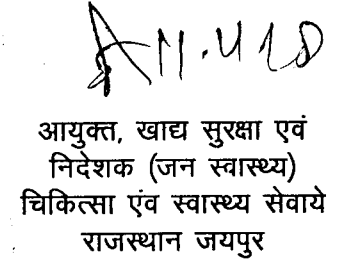 आयुक्त, खाद्य सुरक्षा एवं
निदेशक (जन स्वास्थ्य)
चिकित्सा एंव स्वास्थ्य सेवाये
राजस्थान जयपुर